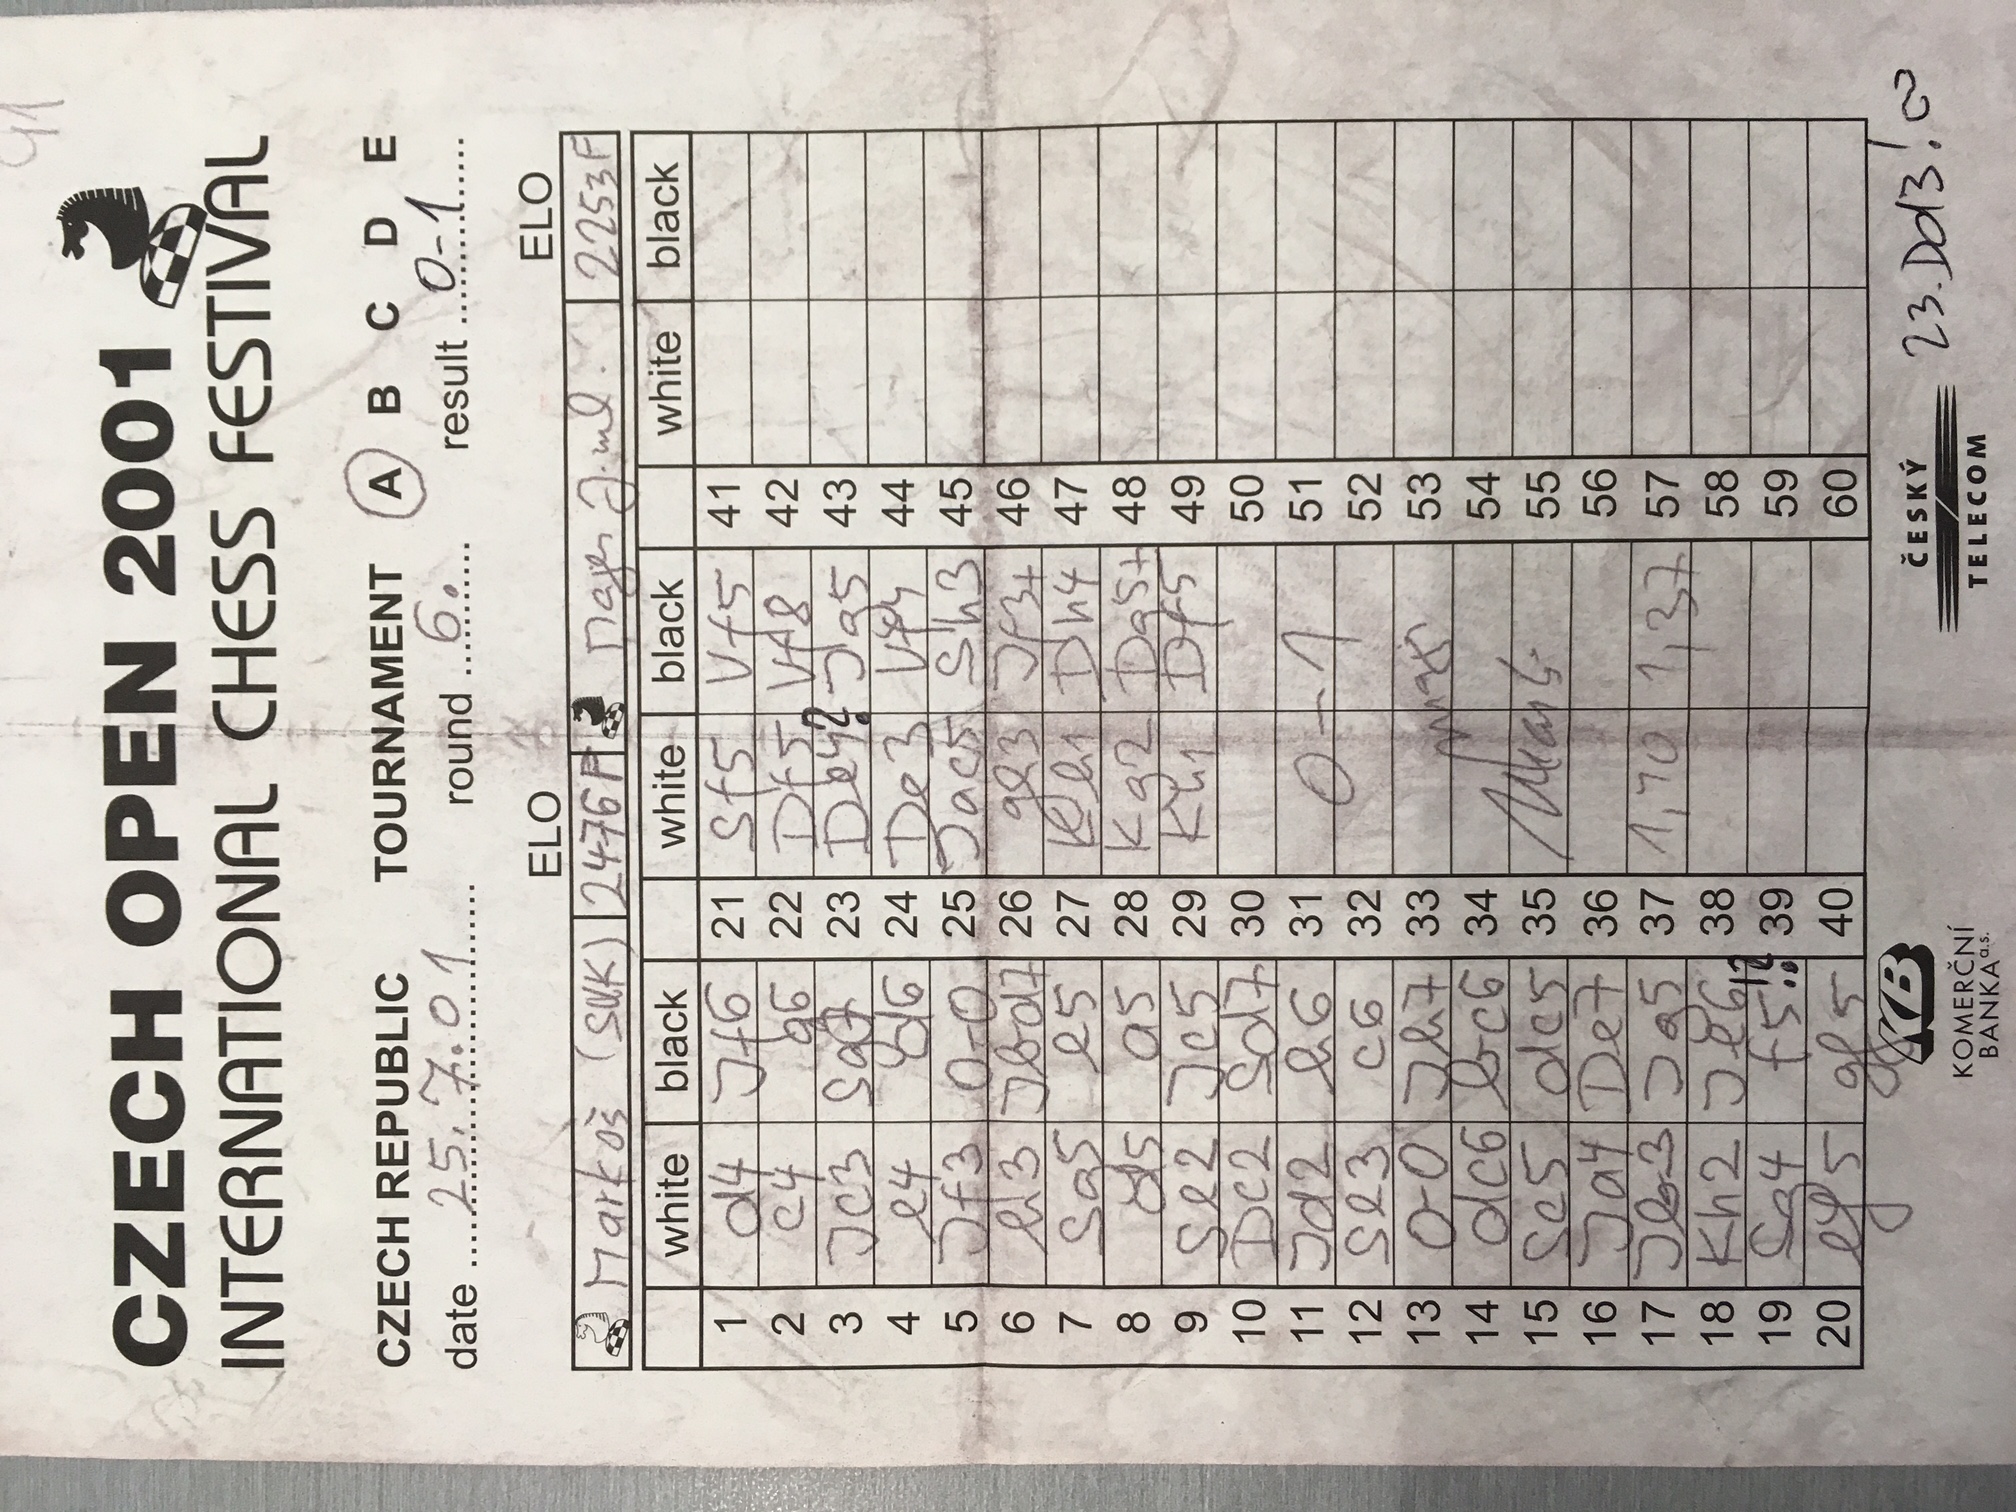 CZECH OPEN 2001
INTERNATIONAL CHESS FESTIVAL
CZECH REPUBLIC TOURNAMENT A B C D E
date 25.7.01 round 6. result 0-1
ELO ELO
Markoš (SVK) 2476 F 2253 F
white black white black white black
1 d4 Jf6 21 Sf5 Vf5 41
2 c4 g6 22 Df5 Vf8 42
3 Jc3 Sg7 23 De4? Jg5 43
4 e4 d6 24 De3 Vf4 44
5 Jf3 0-0 25 Jac5 Sh3 45
6 h3 Jbd7 26 gh3 Jf3+ 46
7 Sg5 e5 27 Kh1 Dh4 47
8 d5 a5 28 Kg2 Dg5+ 48
9 Se2 Jc5 29 Kh1 Df5 49
10 Dc2 Sd7 30 50
11 Jd2 h6 31 0-1 51
12 Se3 c6 32 52
13 0-0 Jh7 33 53
14 dc6 bc6 34 54
15 Sc5 dc5 35 55
16 Ja4 De7 36 56
17 Jb3 Jg5 37 1,40 1,37 57
18 Kh2 Je6!? 38 58
19 Sg4 f5!? 39 59
20 ef5 gf5 40 60
KB
KOMERČNÍ
BANKA a.s.
ČESKÝ
TELECOM
23. Dd3!